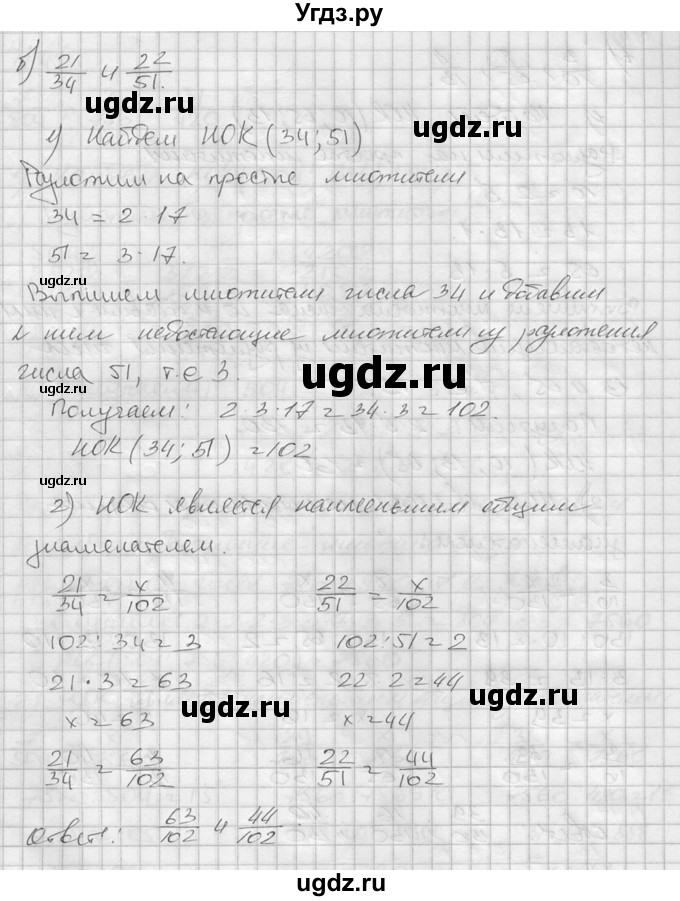 Угдз.ру
б) 21/34 и 22/51.
1) Найдем НОК (34; 51)
Разложим на простые множители
34 = 2 · 17
51 = 3 · 17.
Выпишем множители числа 34 и добавим
к ним недостающие множители из разложения
числа 51, т.е 3.
Получаем: 2 · 3 · 17 = 34 · 3 = 102.
НОК (34; 51) = 102
2) НОК является наименьшим общим
знаменателем.
21/34 = x/102 22/51 = x/102
102 : 34 = 3 102 : 51 = 2
21 · 3 = 63 22 · 2 = 44
x = 63 x = 44
21/34 = 63/102 22/51 = 44/102
Ответ: 63/102 и 44/102.
ugdz.ru
ugdz.ru
ugdz.ru
ugdz.ru
ugdz.ru
ugdz.ru
ugdz.ru
ugdz.ru
ugdz.ru
ugdz.ru
ugdz.ru